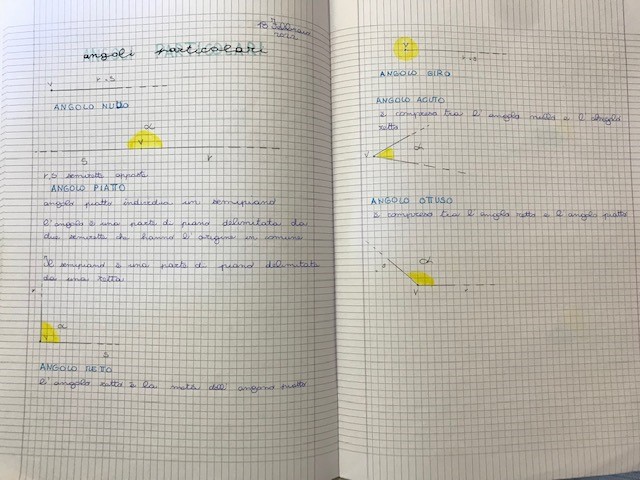 18 Febbraio
angoli particolari
V r = s
ANGOLO NULLO
α
V
s r
r, s semirette opposte
ANGOLO PIATTO
angolo piatto individua un semipiano
l'angolo è una parte di piano delimitata da
due semirette che hanno l'origine in comune
Il semipiano è una parte di piano delimitata
da una retta
r
α
V
s
ANGOLO RETTO
l'angolo retto è la metà dell'angolo piatto
V
r = s
ANGOLO GIRO
ANGOLO ACUTO
è compreso tra l'angolo nullo e l'angolo
retto
α
V
ANGOLO OTTUSO
è compreso tra l'angolo retto e l'angolo piatto
s
α
V r